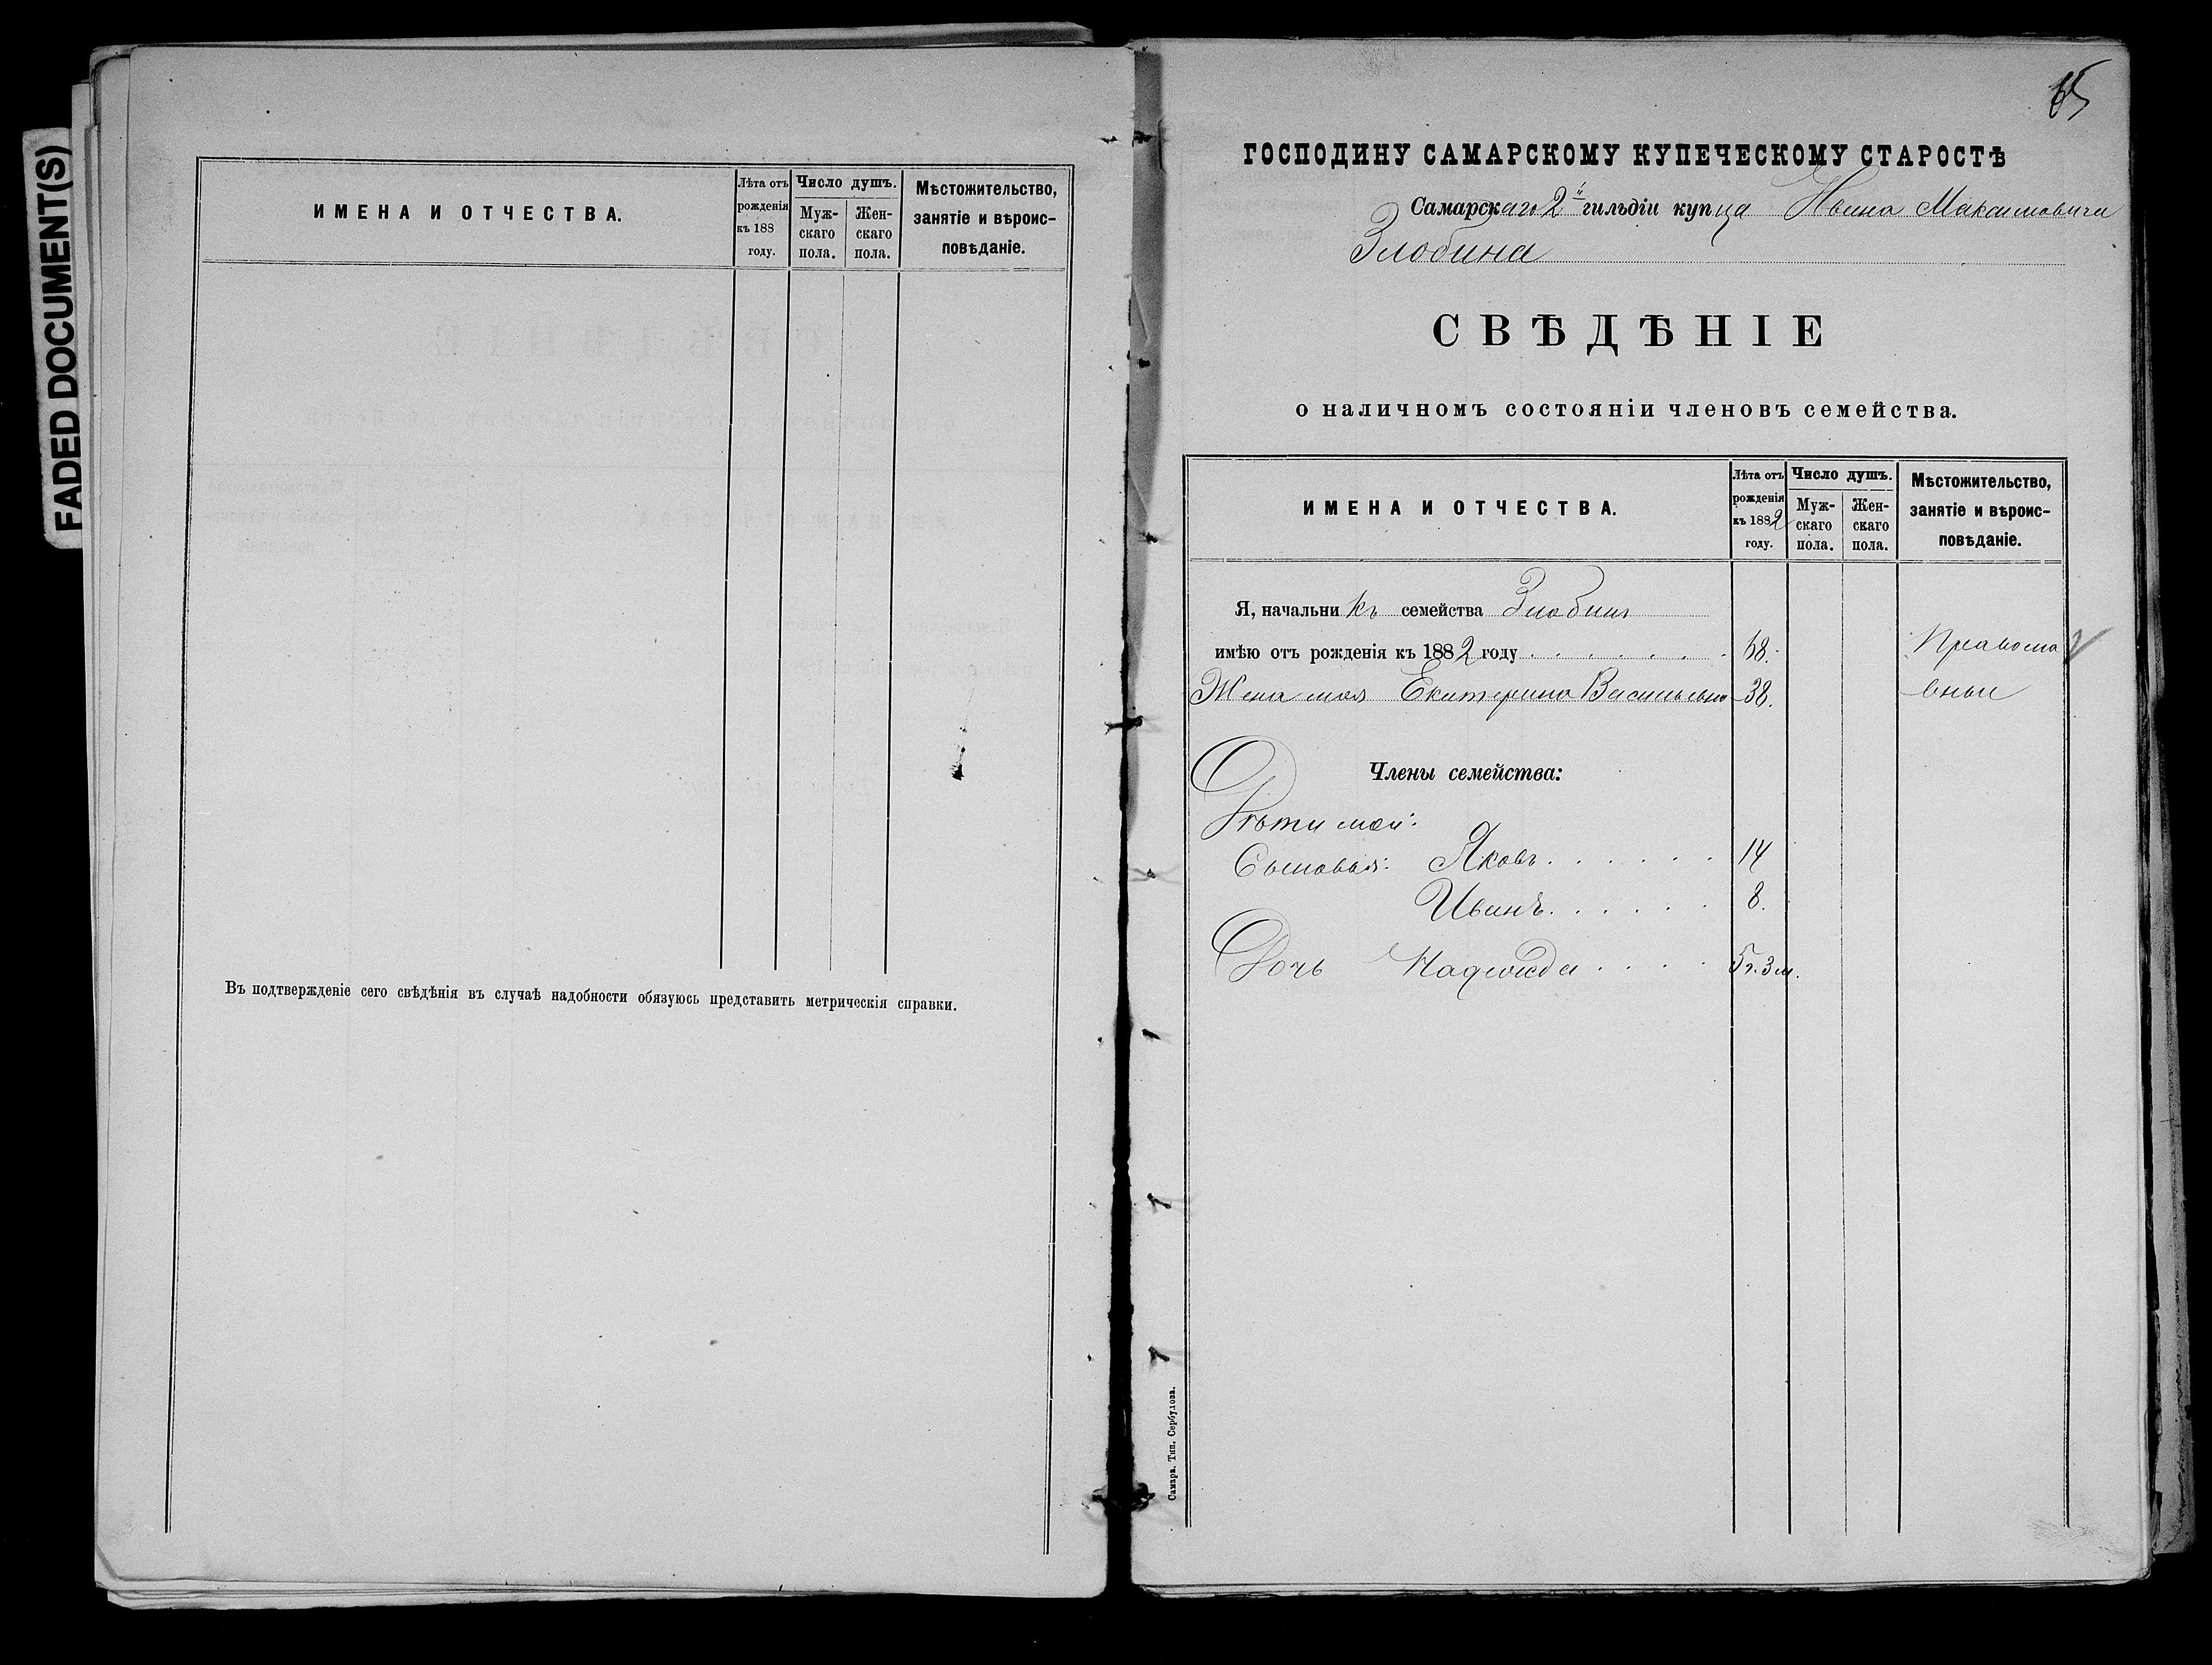 FADED DOCUMENT(S)
ИМЕНА И ОТЧЕСТВА.
Лѣта отъ рожденія къ 188 году.
Число душъ.
Мужскаго пола.
Женскаго пола.
Мѣстожительство, занятіе и вѣроисповѣданіе.
Въ подтвержденіе сего свѣдѣнія въ случаѣ надобности обязуюсь представить метрическія справки.
65
ГОСПОДИНУ САМАРСКОМУ КУПЕЧЕСКОМУ СТАРОСТѢ
Самарскаго 2й гильдіи купца Ивана Максимовича
Злобина
СВѢДѢНІЕ
о наличномъ состояніи членовъ семейства.
ИМЕНА И ОТЧЕСТВА.
Лѣта отъ рожденія къ 1882 году.
Число душъ.
Мужскаго пола.
Женскаго пола.
Мѣстожительство, занятіе и вѣроисповѣданіе.
Я, начальникъ семейства Злобинъ
имѣю отъ рожденія къ 1882 году . . . . . . . 68. Правосла
Жена моя Екатерина Васильевна 38. вный
Члены семейства:
Дѣти мои:
Сыновья: Яковъ . . . . . . 14
Иванъ . . . . . . 8.
Дочь Надежда . . . . 5 г. 3 м.
Самара. Тип. Сербулова.